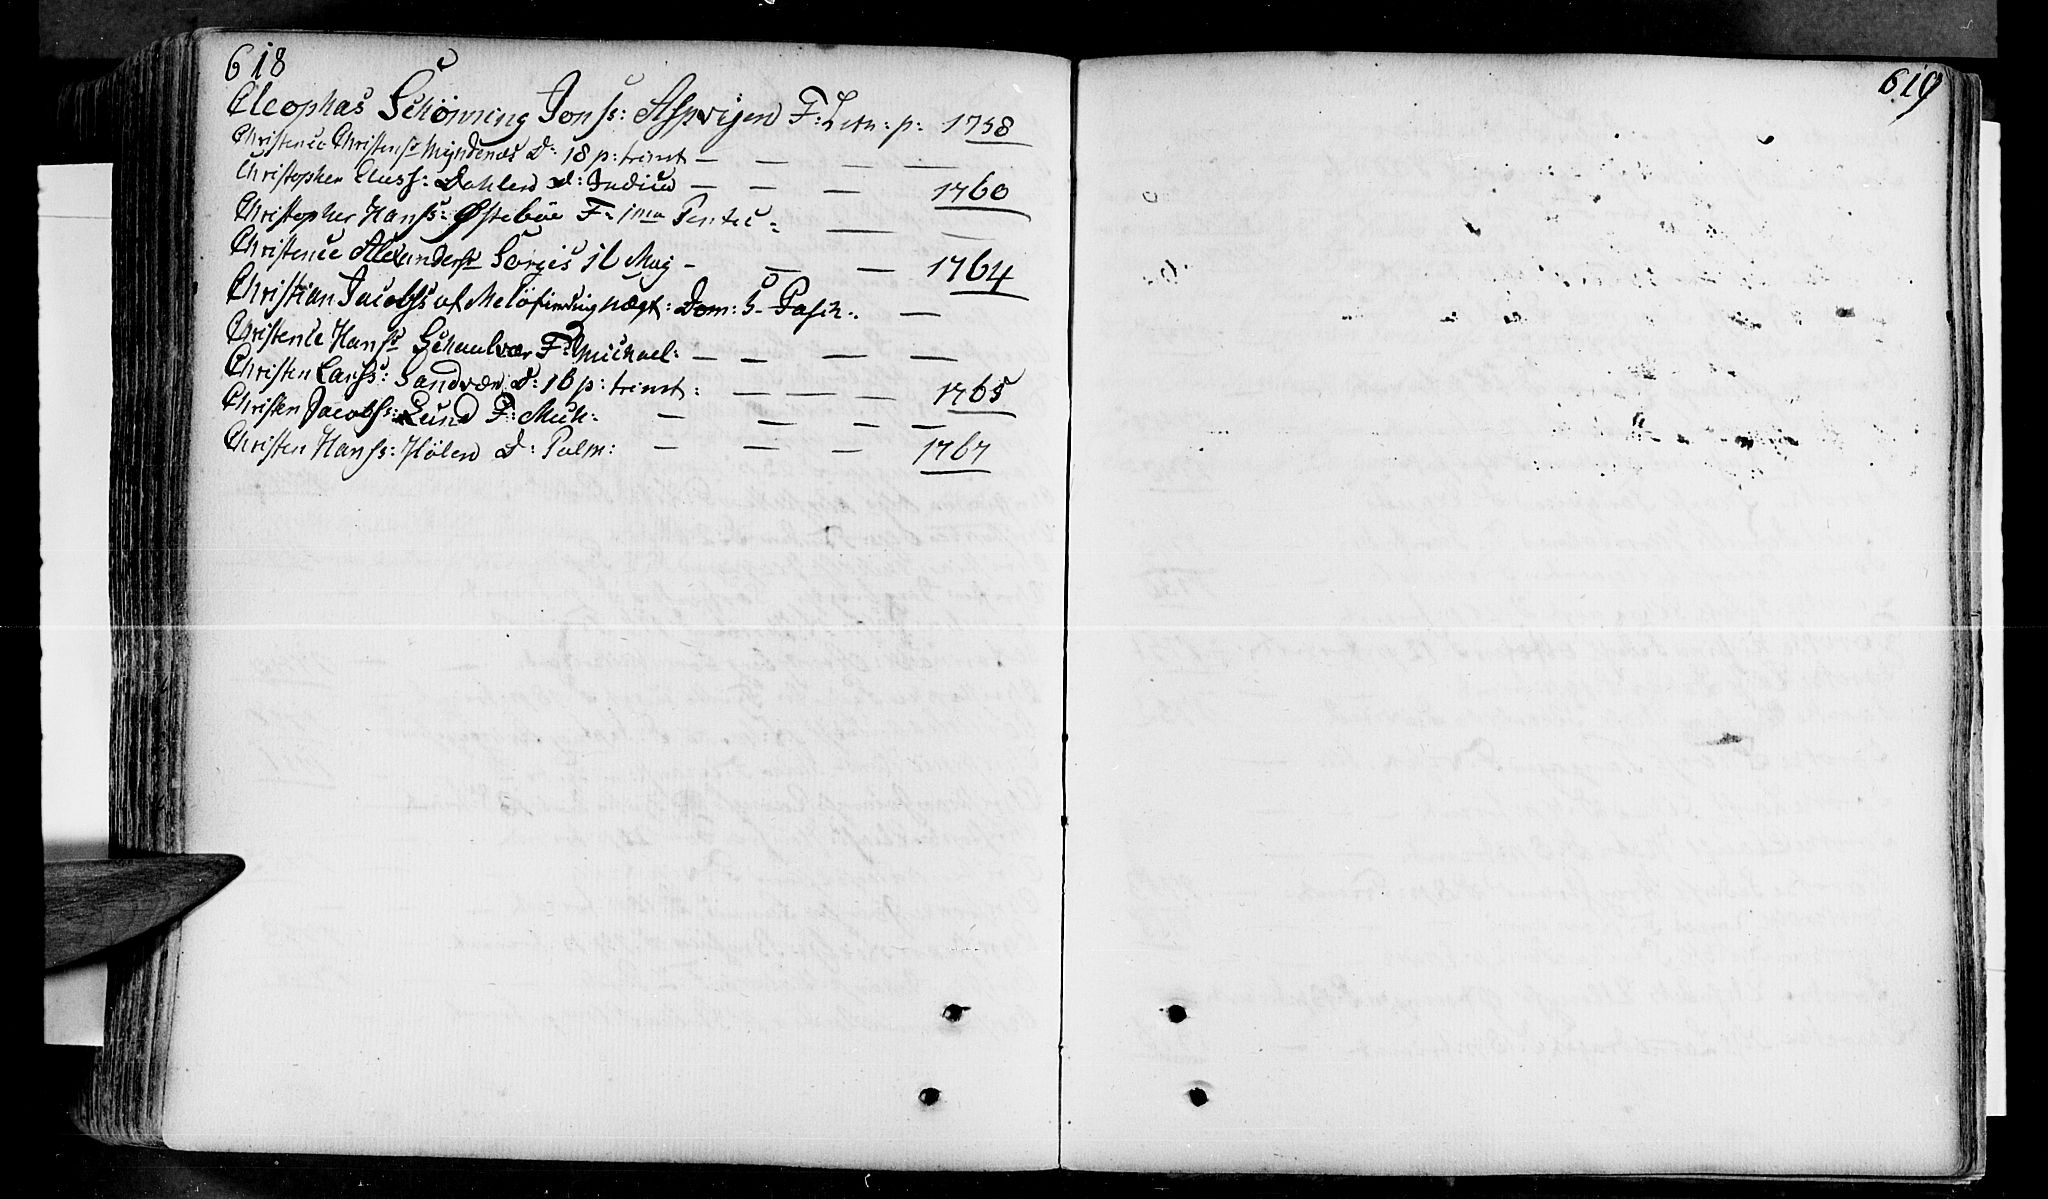 618
Cleophas Schønning Jonss: Aspvigen F: Letn: p: 1758
Christence Christensdr Myndenæs D: 18 p: trinit — — — —
Christopher Clauss: Dahlen d: Judica — — — 1760
Christopher Hanss: Østebøe F: 1ma Pentec: — —
Christence Alexandersdr Sørgis 16 Maj — — — 1764
Christian Jacobss af Meløe Dom: 5 Pasch. —
Christence Hansdr Schaalvær F: Michael: — — — —
Christen Larss: Sandvær D: 16 p: trinit: — — — 1765
Christen Jacobss: Lund F: Mich: — — — —
Christen Hanss: Hølen D: Palm: — — — 1767
619